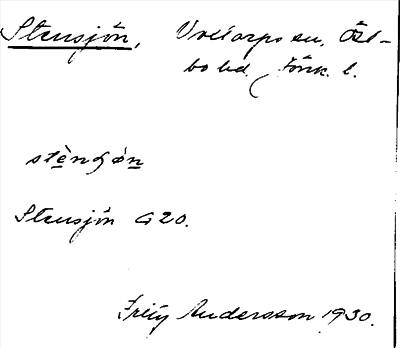 Stensjön, Vrigstorps sn. Öst-
bo hd. Jönk. l.
stèngǿn
Stensjön G 20.
Fritz Andersson 1930.